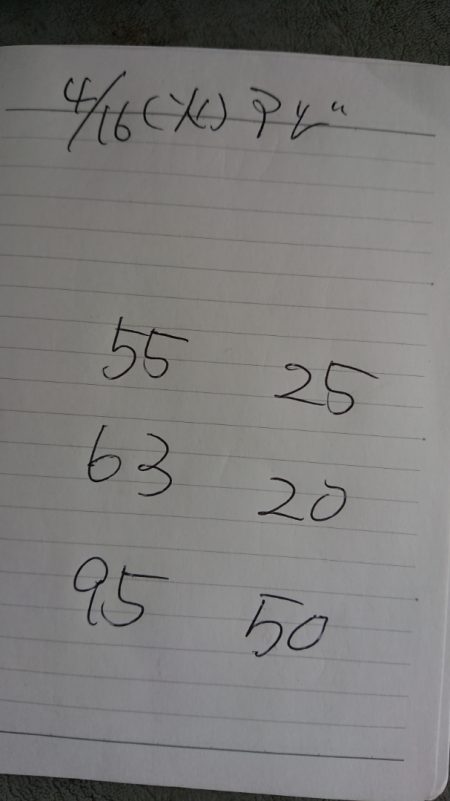 4/16(火)
55 25
63 20
95 50